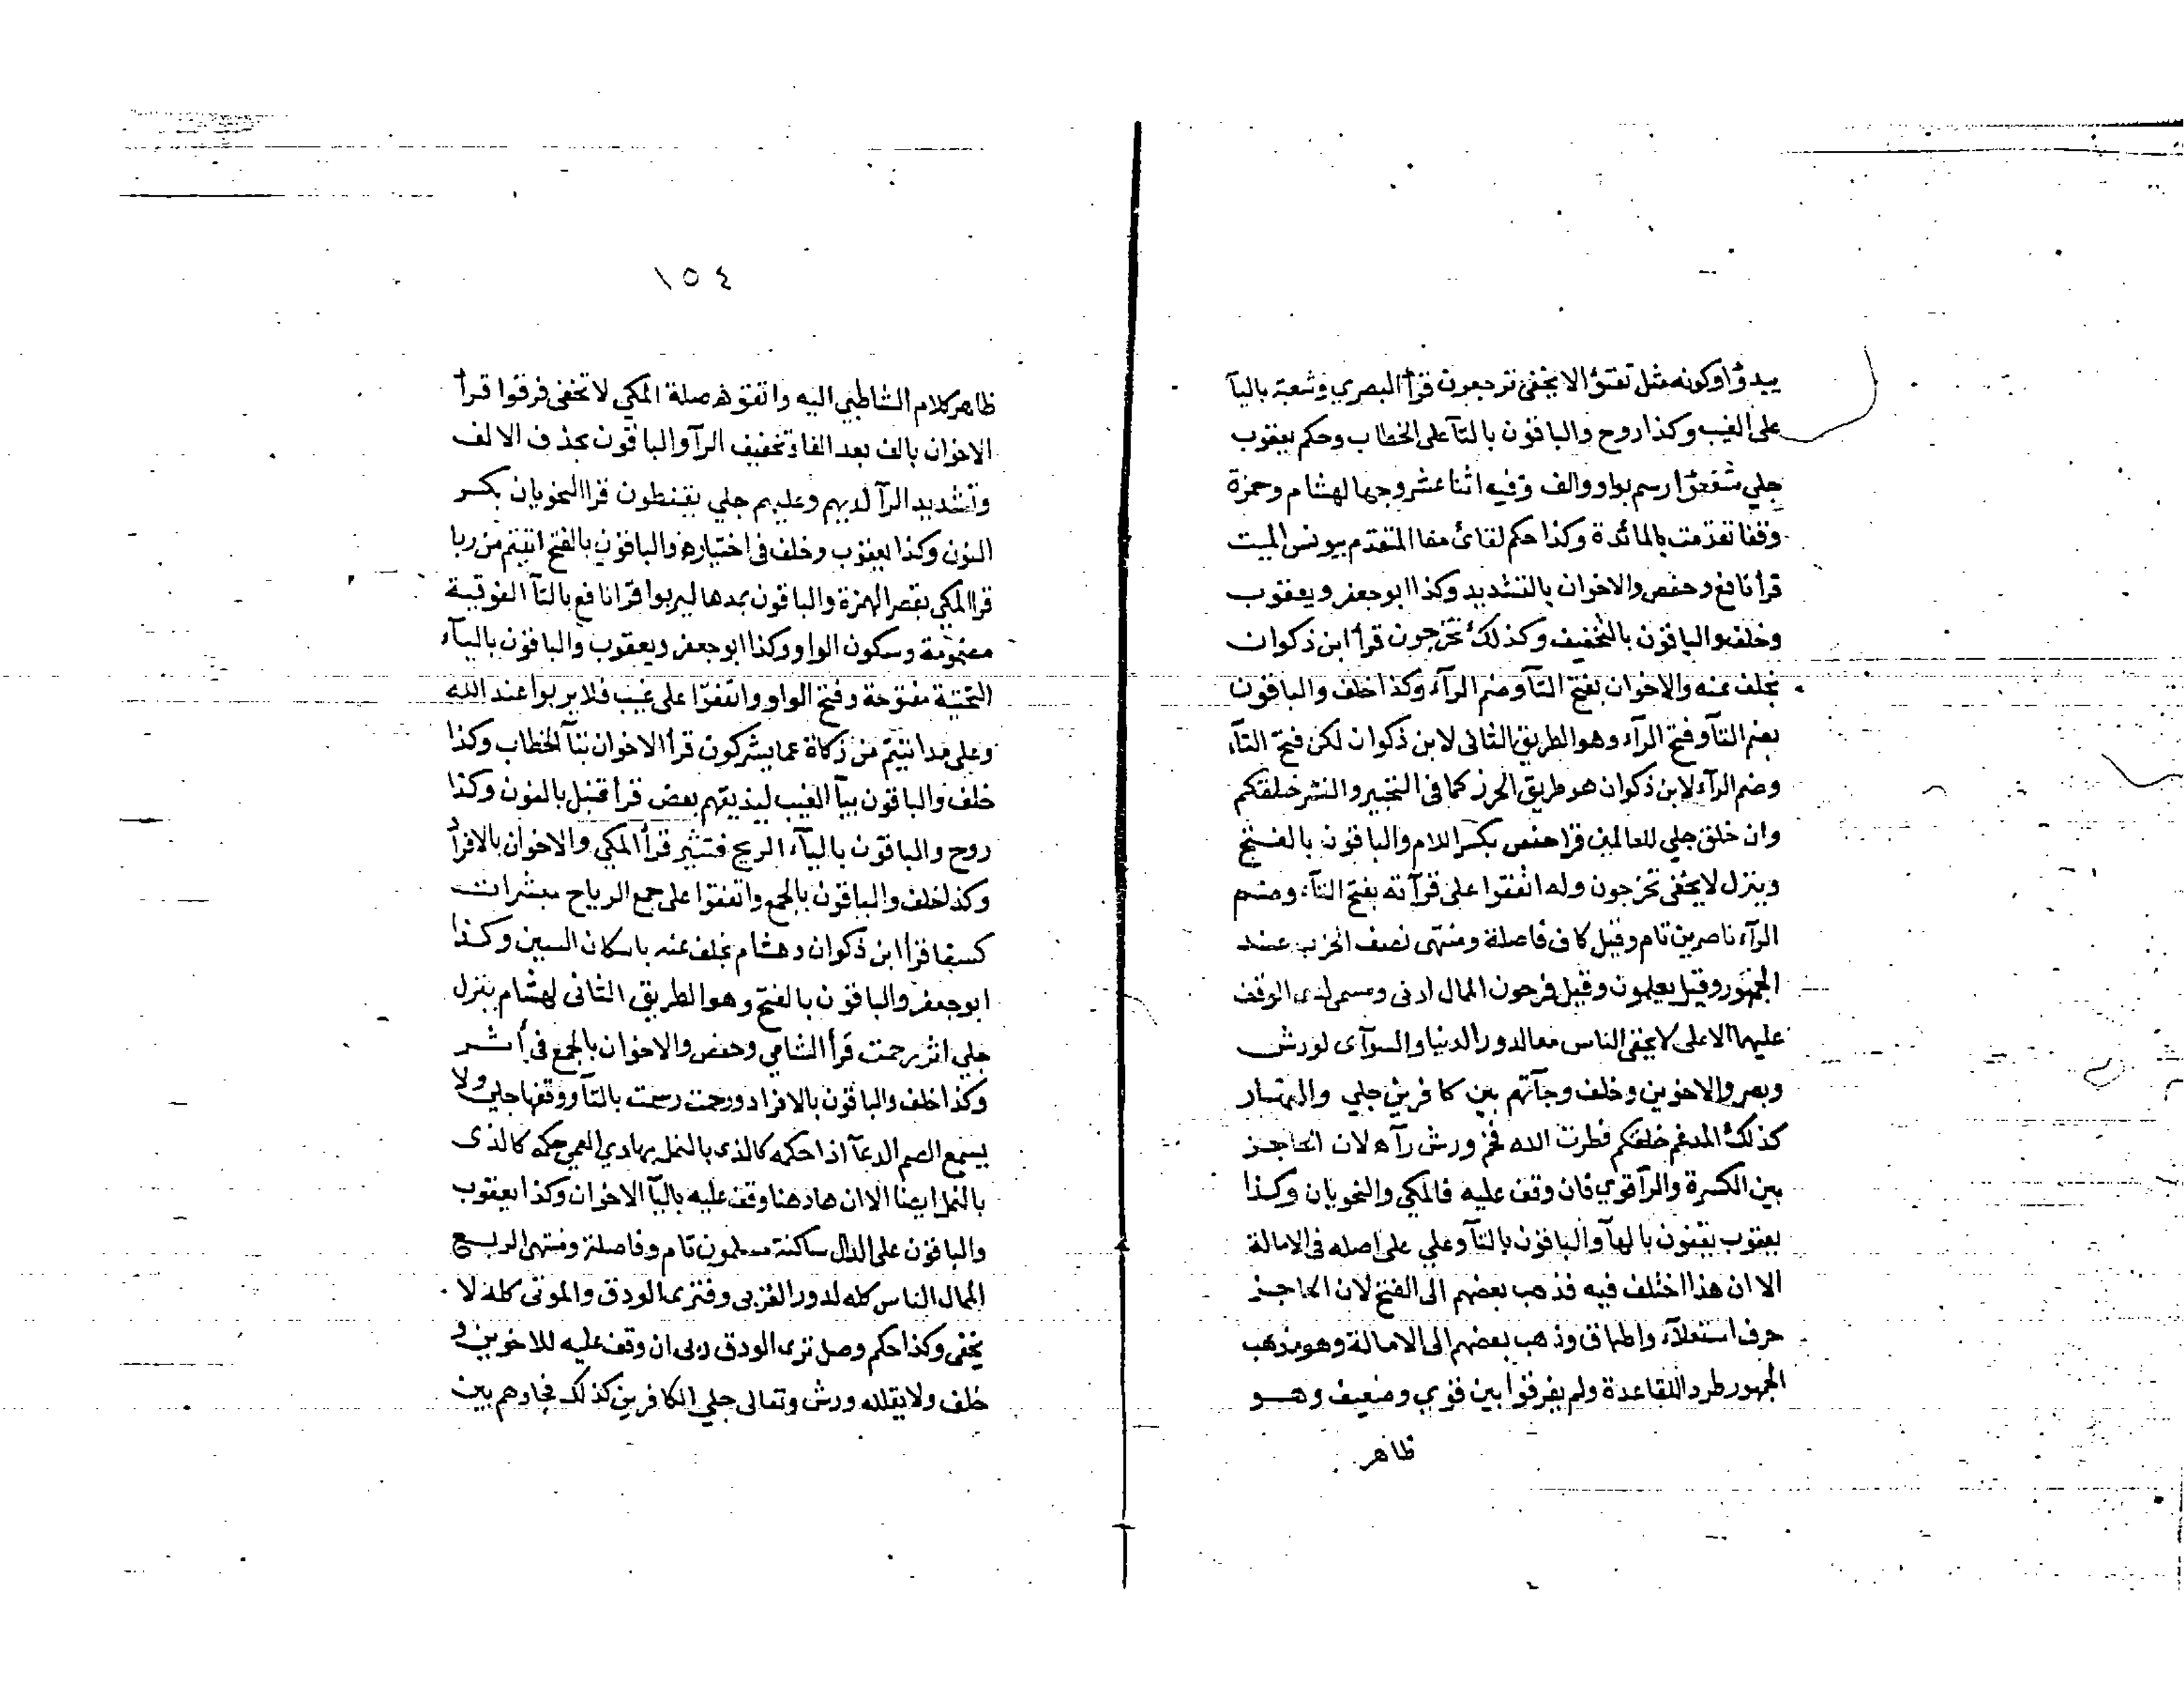 يبدؤا وكونه مثل تفتؤ الا يخفى ترجعون قرأ البصري وشعبة باليآ
على الغيب وكذا روح والباقون بالتآ على الخطاب وحكم يعقوب
جلي شفعؤا رسم بواو والف وفيه اثنا عشر وجها لهشام وحمزة
وقفا تقدمت بالمائدة وكذا حكم لقائ معا المتقدم بيونس الميت
قرأ نافع وحفص والاخوان بالتشديد وكذا ابو جعفر ويعقوب
وخلف والباقون بالتخفيف وكذلك تخرجون قرأ ابن ذكوان
بخلف عنه والاخوان بفتح التآ وضم الرآء وكذا خلف والباقون
بضم التآ وفتح الرآء وهو الطريق الثانى لابن ذكوان لكن فتح التآء
وضم الرآء لابن ذكوان هو طريق الحرز كما فى التحبير والنشر خلقكم
وان خلق جلي للعالمين قرا حفص بكسر اللام والباقون بالفتح
وينزل لا يخفى تخرجون وله اتفقوا على قرآته بفتح التآء وضم
الرآء ناصرين تام وقيل كاف فاصلة ومنتهى نصف الحزب عند
الجمهور وقيل يعلمون وقيل فرحون الممال ادنى ومسمى لدى الوقف
عليهما الاعلى لا يخفى الناس معا لدور الدنيا والسوآى لورش
وبصر والاخوين وخلف وجآتهم بين كافرين جلي والنهار
كذلك المدغم خلقكم فطرت الله فخم ورش رآءه لان الحاجز
بين الكسرة والرآ قوي فان وقف عليه فالمكي والنحويان وكذا
يعقوب يقفون بالهآ والباقون بالتآ وعلي على اصله فى الامالة
الا ان هذا اختلف فيه فذهب بعضهم الى الفتح لان الحاجز
حرف استعلآء واطباق وذهب بعضهم الى الامالة وهو مذهب
الجمهور طردا للقاعدة ولم يفرقوا بين قوي وضعيف وهو
ظاهر
١٥٤
ظاهر كلام الشاطبي اليه واتقوه صلة المكي لا تخفى فرقوا قرأ
الاخوان بالف بعد الفا وتخفيف الرآ والباقون بحذف الالف
وتشديد الرآ لديهم وعليهم جلي يقنطون قرا النحويان بكسر
النون وكذا يعقوب وخلف فى اختياره والباقون بالفتح اتيتم من ربا
قرا المكي بقصر الهمزة والباقون بمدها ليربوا قرا نافع بالتآ الفوقية
مضمومة وسكون الواو وكذا ابو جعفر ويعقوب والباقون باليآء
التحتية مفتوحة وفتح الواو واتفقوا على غيب فلا يربوا عند الله
وعلى مد اتيتم من زكاة عما يشركون قرأ الاخوان بتآ الخطاب وكذا
خلف والباقون بيآ الغيب ليذيقهم بعض قرأ قنبل بالنون وكذا
روح والباقون باليآء الريح فتثير قرأ المكي والاخوان بالافرأد
وكذا خلف والباقون بالجمع واتفقوا على جمع الرياح مبشرات
كسفا قرأ ابن ذكوان وهشام بخلف عنه باسكان السين وكذا
ابو جعفر والباقون بالفتح وهو الطريق الثانى لهشام ينزل
جلي اثر رحمت قرأ الشامي وحفص والاخوان بالجمع فى أثر
وكذا خلف والباقون بالافراد ورحمت رسمت بالتآ ووقفها جلي ولا
يسمع الصم الدعآ اذا حكمه كالذى بالنمل بهادي العمي حكمه كالذى
بالنمل ايضا الا ان هاد هنا وقف عليه باليآ الاخوان وكذا يعقوب
والباقون على الدال ساكنة مسلمون تام وفاصلة ومنتهى الربع
الممال الناس كله لدور القربى وفترى الودق والموتى كله لا
يخفى وكذا حكم وصل ترى الودق وبى ان وقف عليه للاخوين و
خلف ولا يقلله ورش وتعالى جلي الكافرين كذلك فجاؤهم بين